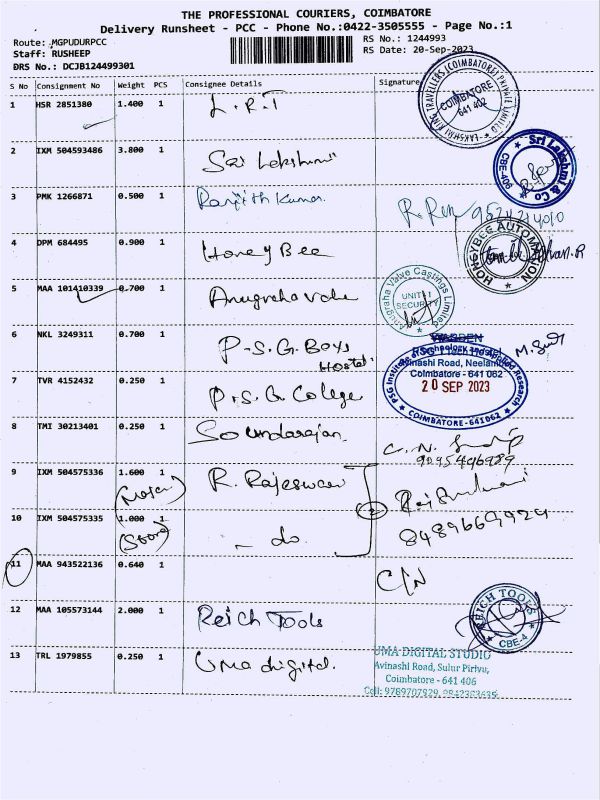 THE PROFESSIONAL COURIERS, COIMBATORE
Delivery Runsheet - PCC - Phone No.:0422-3505555 - Page No.:1
Route: MGPUDURPCC
RS No.: 1244993
Staff: RUSHEEP
RS Date: 20-Sep-2023
DRS No.: DCJB124499301
S No Consignment No Weight PCS Consignee Details Signature
1 HSR 2851380 1.400 1 L.R.T
LAKSHMI RING TRAVELLERS (COIMBATORE) PRIVATE LIMITED
COIMBATORE
641 402
2 IXM 504593486 3.800 1 Sri Lakshmi
Sri Lakshmi & Co
CBE-406
3 PMK 1266871 0.500 1 Ranjith Kumar
4 DPM 684495 0.900 1 Honey Bee
HONEYBEE AUTOMATION
5 MAA 101410339 0.700 1 Anugraha Valve
Anugraha Valve Castings Limited
UNIT-I
SECURITY
6 NKL 3249311 0.700 1 P.S.G. Boys
Hostel.
WARDEN
7 TVR 4152432 0.250 1 P.S.G. College
PSG Institute of Technology and Applied Research
Avinashi Road, Neelambur
Coimbatore - 641 062
20 SEP 2023
COIMBATORE-641062
8 TMI 30213401 0.250 1 Soundarajan
9095496989
9 IXM 504575336 1.600 1 R. Rajeswari
10 IXM 504575335 1.000 1 - do.
2
8489669924
11 MAA 943522136 0.640 1
C/N
12 MAA 105573144 2.000 1 Reich Tools
REICH TOOLS
CBE-4
13 TRL 1979855 0.250 1 Uma digital.
UMA DIGITAL STUDIO
Avinashi Road, Sulur Pirivu,
Coimbatore - 641 406
Cell: 9789707929, 9842363635